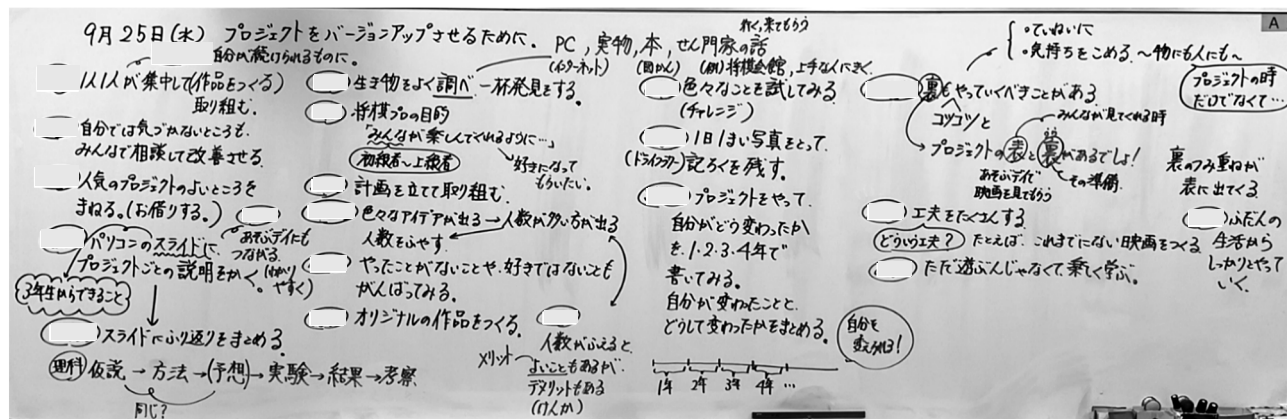 A
9月25日(水) プロジェクトをバージョンアップさせるために。
自分が続けられるものに。
1人1人が集中して(作品をつくる)
取り組む。
自分では気づかないところも、
みんなで相談して改善させる。
人気のプロジェクトのよいところを
まねる。(お借りする。)
あそぶデイにも
つながる。
パソコンのスライドに、
プロジェクトごとの説明をかく。
(わかりやすく)
3年生からできること
スライドにふり返りをまとめる。
理科 仮説→方法→(予想)→実験→結果→考察
同じ?
PC, 実物, 本, せん門家の話
(インターネット) (図かん) (例)将棋会館, 上手な人にきく。
来てもらう
生き物をよく調べ、一杯発見をする。
将棋プロの目的
「みんなが楽しんでくれるように…」
初級者~上級者
好きになって
もらいたい。
計画を立てて取り組む。
色々なアイデアが出る→人数が多い方が出る
人数をふやす。
やったことがないことや、好きではないことも
がんばってみる。
オリジナルの作品をつくる。
人数がふえると、
メリット
よいこともあるが、
デメリットもある
(けんか)
色々なことを試してみる。
(チャレンジ)
1日1まい写真をとって、
(ドライフラワー)記ろくを残す。
プロジェクトをやって、
自分がどう変わったか
を1・2・3・4年で
書いてみる。
自分が変わったことと、
どうして変わったかをまとめる。
自分を
変えられる!
1年 2年 3年 4年 …
・ていねいに
・気持ちをこめる。~物にも人にも~
プロジェクトの時
だけでなくて…
裏もやっていくべきことがある
コツコツと
みんなが見てくれる時
プロジェクトの表と裏があるでしょ!
あそぶデイで
映画を見てもらう
その準備。
裏のつみ重ねが
表に出てくる
工夫をたくさんする。
どういう工夫? たとえば、これまでにない映画をつくる
ただ遊ぶんじゃなくて、楽しく学ぶ。
ふだんの
生活から
しっかりとやって
いく。